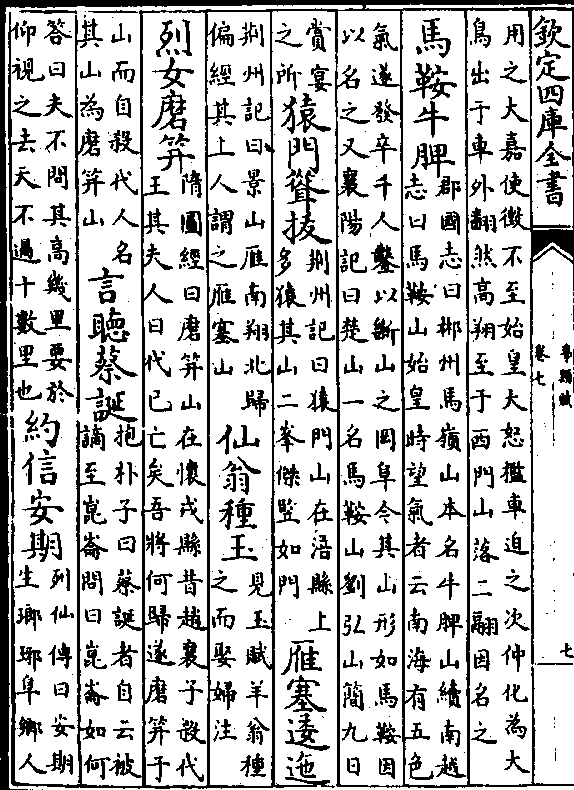 欽定四庫全書
事類賦
卷七
七
用之大嘉使徵不至始皇大怒檻車追之次仲化為大
鳥出于車外翻然高翔至于西門山落二翮因名之
馬鞍牛脾
郡國志曰郴州馬嶺山本名牛脾山續南越
志曰馬鞍山始皇時望氣者云南海有五色
氣遂發卒千人鑿以斷山之岡阜令其山形如馬鞍因
以名之又襄陽記曰楚山一名馬鞍山劉弘山簡九日
賞宴
之所
猿門聳拔
荆州記曰猿門山在浯縣上
多猿其山二峯傑竪如門
雁塞逶迤
荆州記曰景山雁南翔北歸
偏經其上人謂之雁塞山
仙翁種玉
見玉賦羊翁種
之而娶婦注
烈女磨笄
隋圖經曰磨笄山在懷戎縣昔趙襄子殺代
王其夫人曰代已亡矣吾將何歸遂磨笄于
山而自殺代人名
其山為磨笄山
言聽蔡誕
抱朴子曰蔡誕者自云被
謫至崑崙問曰崑崙如何
答曰夫不問其高幾里要於
仰視之去天不過十數里也
約信安期
列仙傳曰安期
生瑯琊阜鄉人